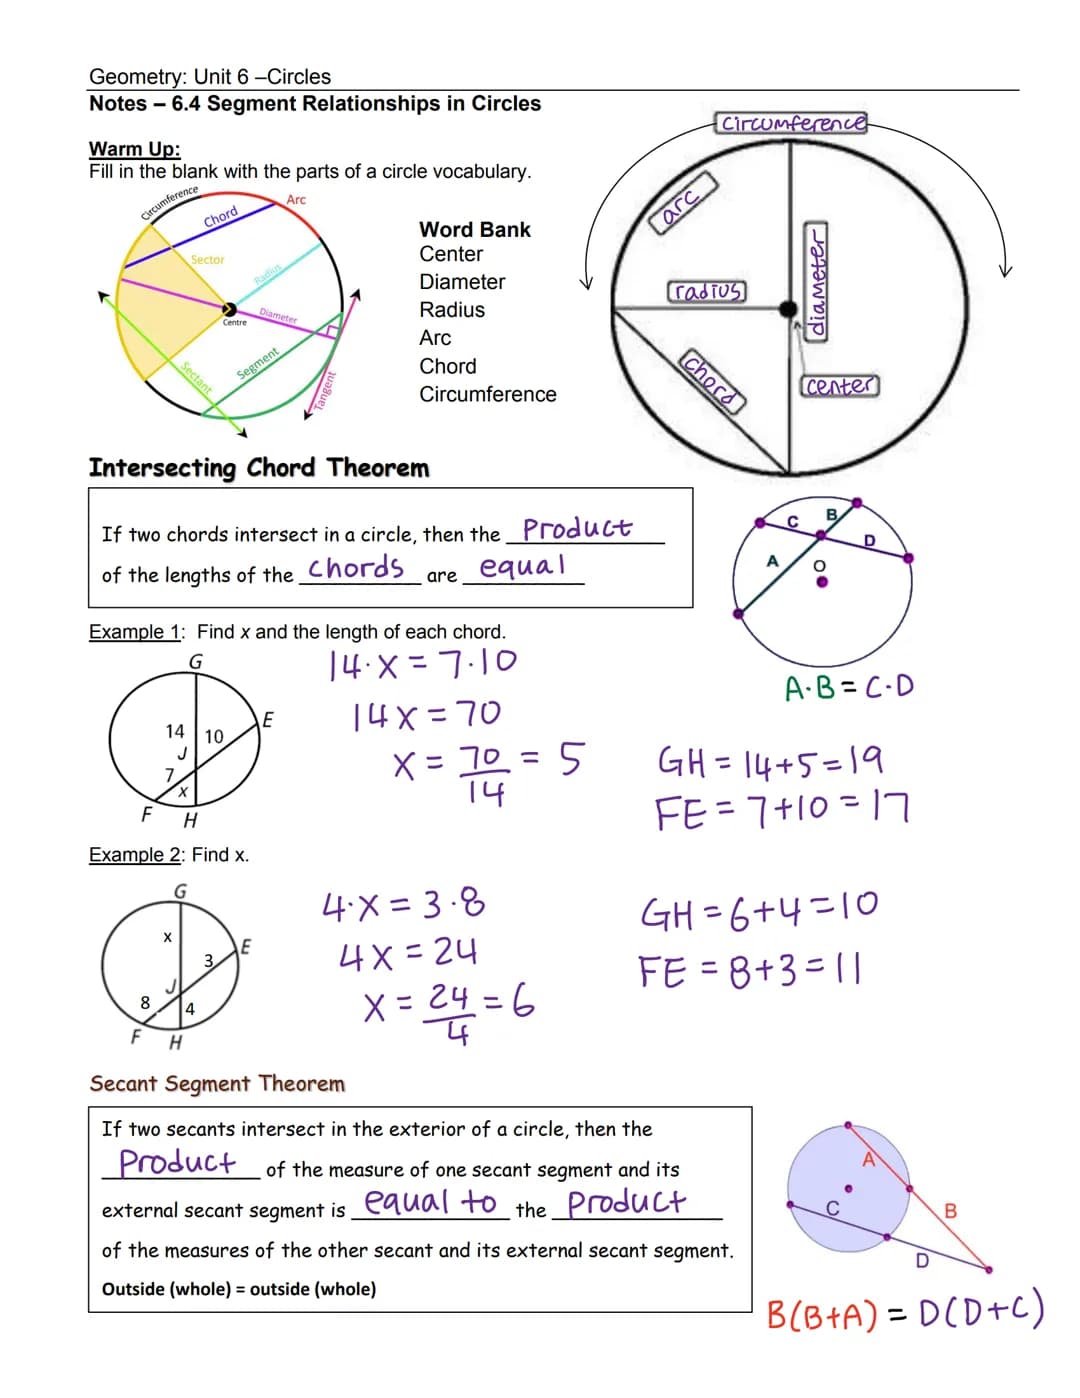 Geometry: Unit 6 –Circles
Notes – 6.4 Segment Relationships in Circles
Warm Up:
Fill in the blank with the parts of a circle vocabulary.
Circumference
Chord
Arc
Sector
Radius
Diameter
Centre
Segment
Sectant
Tangent
Word Bank
Center
Diameter
Radius
Arc
Chord
Circumference
Circumference
arc
radius
diameter
chord
center
Intersecting Chord Theorem
If two chords intersect in a circle, then the Product
of the lengths of the chords are equal
C
B
D
A
O
A·B = C·D
Example 1: Find x and the length of each chord.
G
14
10
E
J
7
x
F
H
14·x = 7·10
14x = 70
x = 70/14 = 5
GH = 14+5=19
FE = 7+10=17
Example 2: Find x.
G
x
E
3
J
8
4
F
H
4·x = 3·8
4x = 24
x = 24/4 = 6
GH =6+4=10
FE =8+3=11
Secant Segment Theorem
If two secants intersect in the exterior of a circle, then the
Product of the measure of one secant segment and its
external secant segment is equal to the Product
of the measures of the other secant and its external secant segment.
Outside (whole) = outside (whole)
A
C
B
D
B(B+A) = D(D+C)